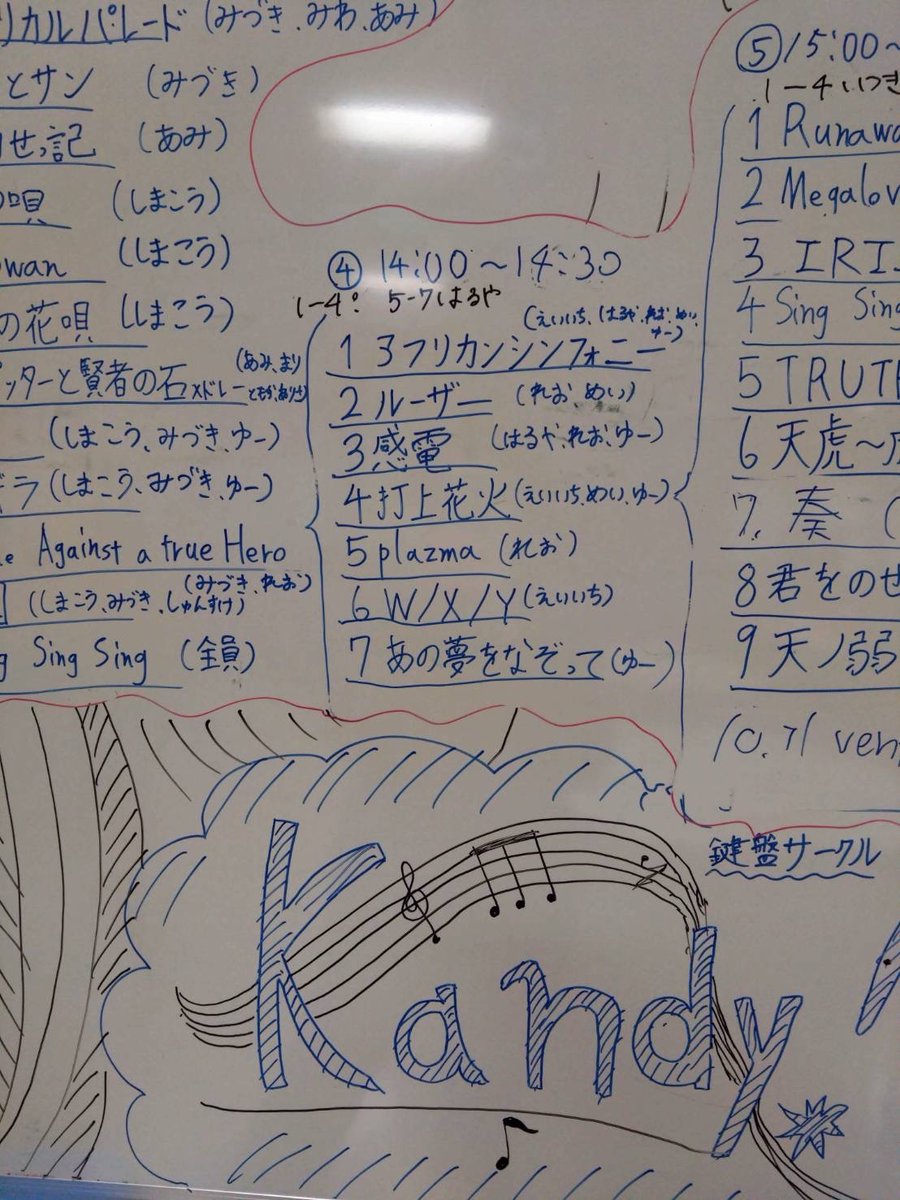 リカルパレード (みづき、みわ、あみ)
とサン (みづき)
せっ記 (あみ)
唄 (しまこう)
wan (しまこう)
の花唄 (しまこう)
ッターと賢者の石メドレー (あみ、まり
(しまこう、みづき、ゆー)
ラ (しまこう、みづき、ゆー)
Against a true Hero
(みづき、れお)
(しまこう、みづき、しゅんすけ)
g Sing Sing (全員)
④ 14:00~14:30
1-4: 5-7はるや
(えいいち、はるや、れお、めい、
ゆー)
1 アフリカンシンフォニー
2 ルーザー (れお、めい)
3 感電 (はるや、れお、ゆー)
4 打上花火 (えいいち、めい、ゆー)
5 plazma (れお)
6 W/X/Y (えいいち)
7 あの夢をなぞって (ゆー)
⑤ 15:00~
1-4いつき
1 Runawa
2 Megalov
3 IRI
4 Sing Sing
5 TRUTH
6 天虎~
7. 奏 (
8 君をのせ
9 天ノ弱
10.
鍵盤サークル
Kandy